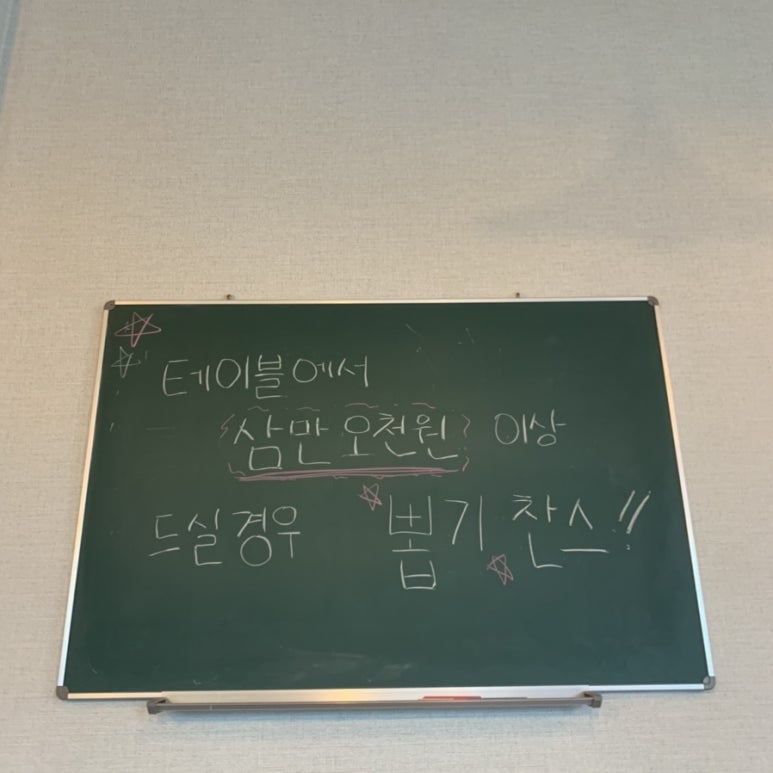 테이블에서
삼만 오천원 이상
드실경우 뽑기 찬스!!